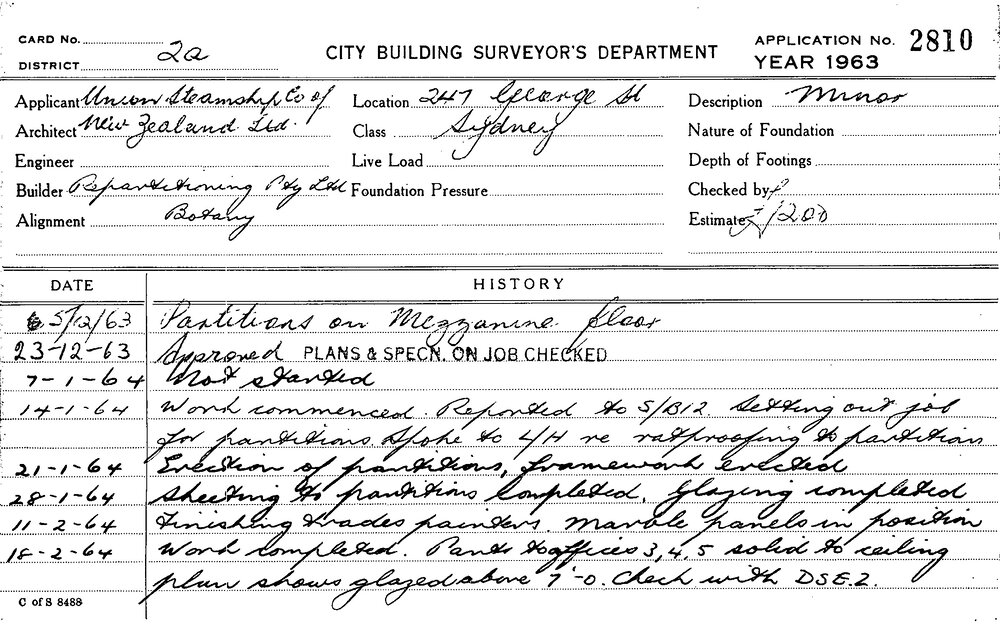 CARD No.
DISTRICT 2a
CITY BUILDING SURVEYOR'S DEPARTMENT
APPLICATION No. 2810
YEAR 1963
Applicant Union Steamship Co of
Architect New Zealand Ltd.
Engineer
Builder Repartitioning Pty Ltd
Alignment Botany
Location 247 George St
Class Sydney
Live Load
Foundation Pressure
Description Minor
Nature of Foundation
Depth of Footings
Checked by
Estimate £1200
DATE HISTORY
5/12/63 Partitions on Mezzanine floor
23-12-63 Approved PLANS & SPECN. ON JOB CHECKED
7-1-64 Not started
14-1-64 Work commenced. Reported to S/B12 Setting out job
for partitions Spoke to L/H re ratproofing to partition
21-1-64 Erection of partitions, framework erected
28-1-64 Sheeting to partitions completed, Glazing completed
11-2-64 Finishing trades painters. Marble panels in position
18-2-64 Work completed. Parts to offices 3, 4, 5 solid to ceiling
plan shows glazed above 7'-0. Check with DSE.2.
C of S 8488